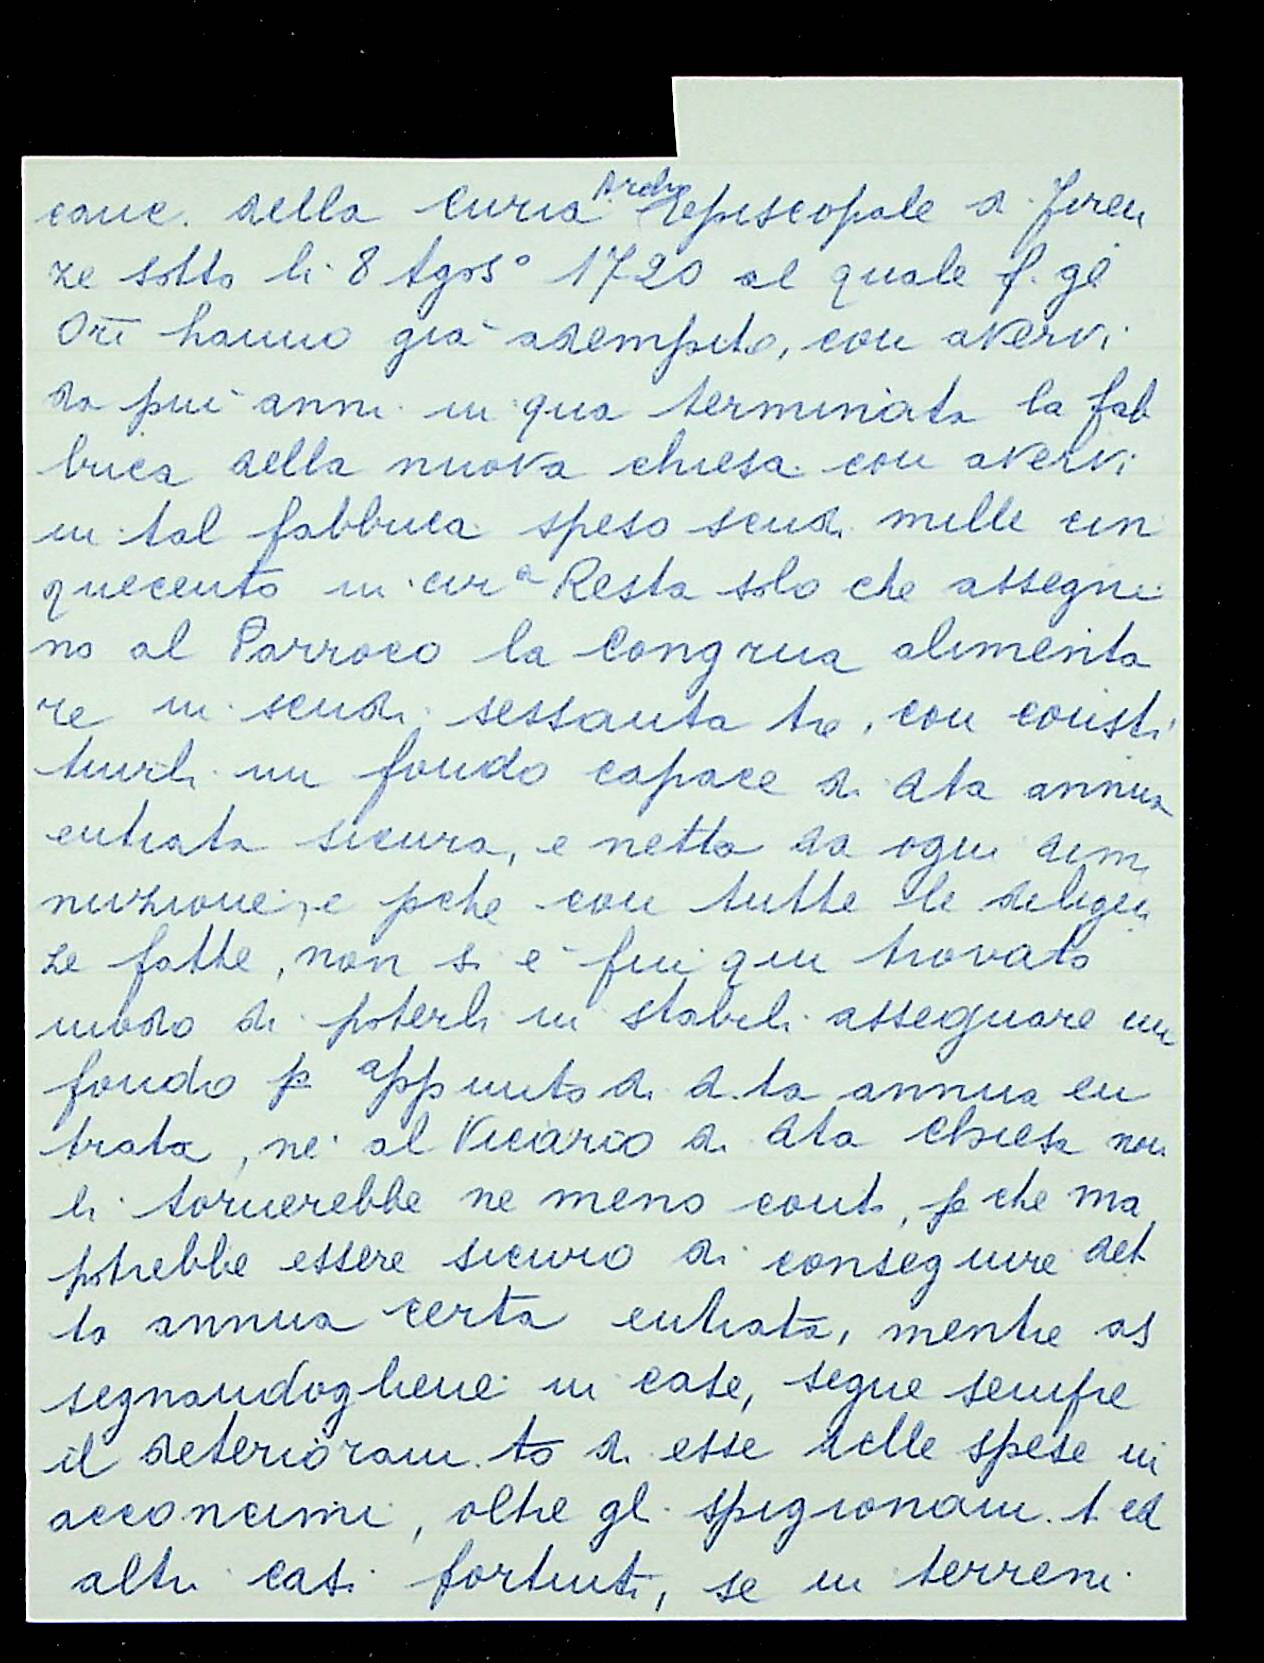 canc. della Curia Arch Episcopale di Firen
ze sotto li 8 Agos° 1720 al quale p. gl
Ori hanno già adempito, con avervi
da più anni in qua terminata la fab
brica della nuova chiesa con avervi
in tal fabbrica speso scudi mille cin
quecento in cir.a Resta solo che assegni
no al Parroco la Congrua alimenta
re in scudi sessanta tre, con consti
tuirli un fondo capace di dta annua
entrata sicura, e netta da ogni dim
nuzione, e pche con tutte le diligen
ze fatte, non si è fin qui trovato
modo di poterli in stabili assegnare un
fondo p appunto di d.ta annua en
trata, nè al Vicario di dta Chiesa non
li tornerebbe ne meno conto, p che ma
potrebbe essere sicuro di conseguire det
ta annua certa entrata, mentre as
segnandogliene in case, segue sempre
il deterioram.to di esse delle spese in
acconcimi, oltre gl spigionam.t ed
altri casi fortuiti, se in terreni